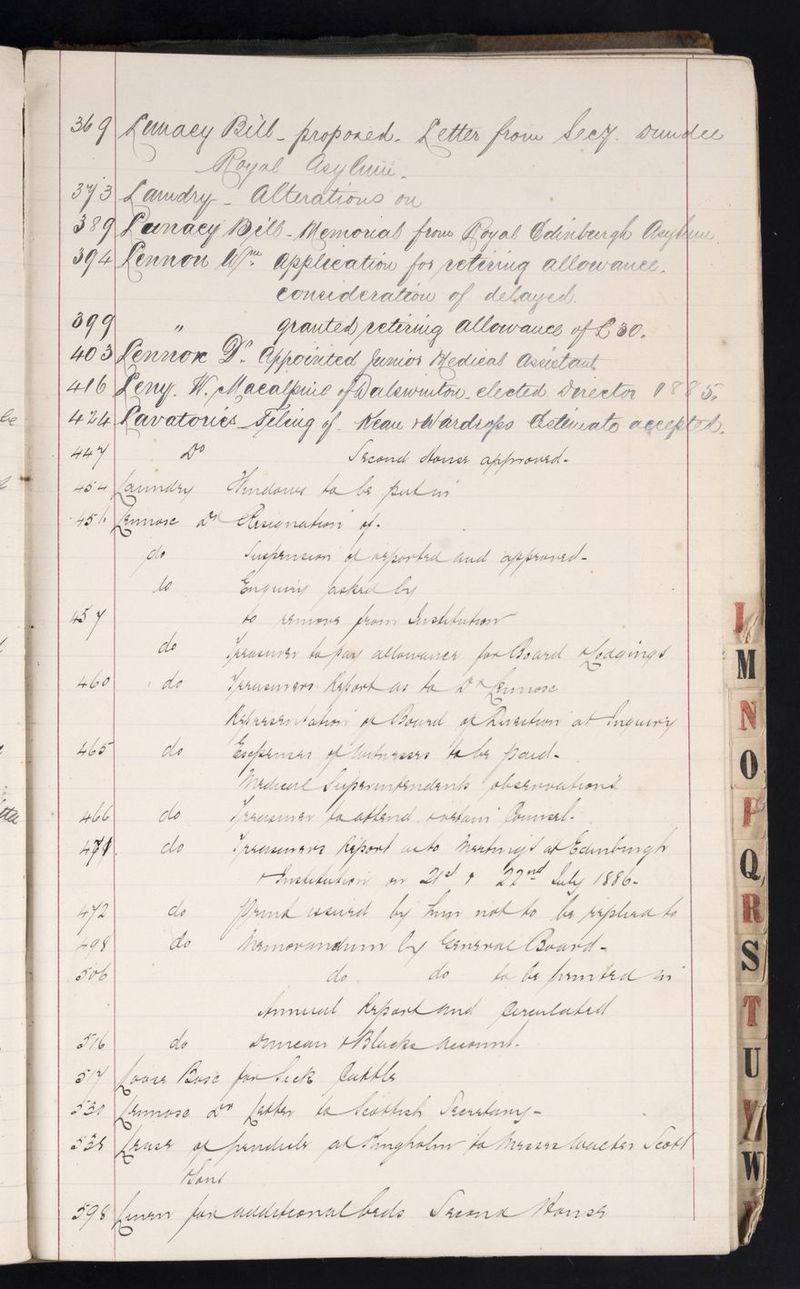 369 Lunacy Bill - proposed. Letter from Secy. Dundee
Royal Asylum.
373 Laundry - Alterations on
389 Lunacy Bill - Memorial from Royal Edinburgh Asylum
394 Lennon Wm. Application for retiring allowance.
consideration of delayed.
399 " granted retiring allowance of £30.
403 Lennox Dr. Appointed Junior Medical Assistant
416 Leny. W. Macalpine of Dalswinton elected Director 1885.
424 Lavatories - Tiling of Kean & Wardrops Estimate accepted.
447 Do Second House approved -
454 Laundry Windows to be put in
456 Lennox Dr Resignation of -
do Suspension of reported and approved -
do Enquiry asked by
457 to remove from Institution
do Treasurer to pay allowance for Board & Lodgings
460 do Treasurers Report as to Dr Lennox
Representation of Board of Direction at Inquiry
465 do Expenses of Witnesses to be paid -
Medical Superintendents observations
466 do Treasurer to attend & retain Counsel -
471 do Treasurers Report as to Meetings at Edinburgh
& Institution on 21st & 22nd July 1886 -
472 do print issued by him not to be replied to
498 do Memorandum by General Board -
506 do do to be printed in
Annual Report and Circulated
516 do Duncan & Blacks Account -
517 Loose Box for Sick Cattle
530 Lennox Dr Letter to Scottish Secretary -
538 Lease of at Kingholm to Messrs Walter Scott
& Sons
598 Linen for additional beds Second House
L
M
N
O
P
Q
R
S
T
U
V
W